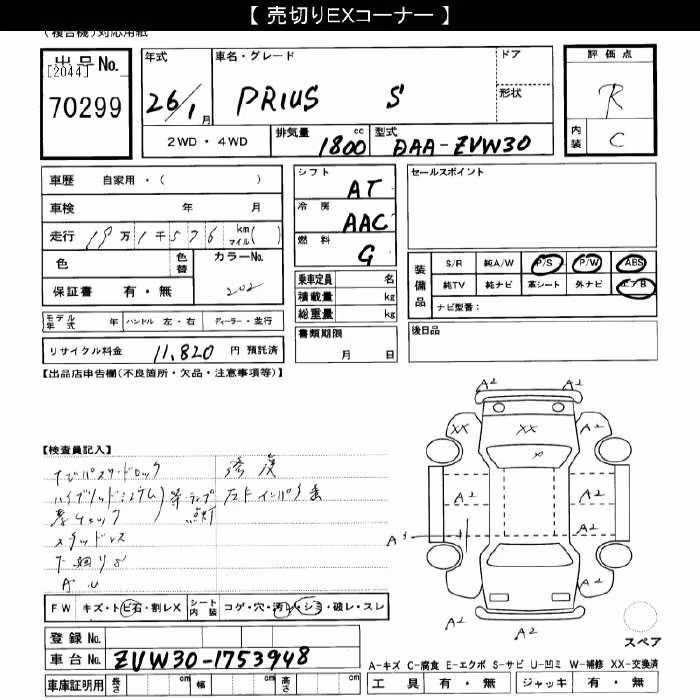 【 売切りEXコーナー 】
(複合機)対応用紙
出品No.
[2044]
70299
年式
26/1月
車名・グレード
PRIUS S
ドア
形状
2WD・4WD
排気量 1800 cc
型式 DAA-ZVW30
評価点
R
内装 C
車歴 自家用・( )
車検 年 月
走行 19万1千576 km マイル( )
色
色替
カラーNo.
202
保証書 有・無
シフト AT
冷房 AAC
燃料 G
乗車定員 名
積載量 kg
総重量 kg
セールスポイント
装備品
S/R 純A/W P/S P/W ABS
純TV 純ナビ 革シート 外ナビ エアB
ナビ型番:
モデル年式 年 ハンドル 左・右 ディーラー・並行
リサイクル料金 11,820 円 預託済
書類期限
月 日
後日品
【出品店申告欄(不良箇所・欠品・注意事項等)】
【検査員記入】
ナビパスワードロック
ハイブリッドシステム
等ランプ点灯
スタッドレス
下廻りS
A U
A2 A2
XX XX A2
A2 A2
A2 A2
A3
A2 A2
A2 A2
FW キズ・トビ石・割レX シート内装 コゲ・穴・汚レ・シミ・破レ・スレ
登録 No.
車台 No. ZVW30-1753948
車庫証明用 長さ cm 幅 cm 高さ cm
スペア
A-キズ C-腐食 E-エクボ S-サビ U-凹ミ W-補修 XX-交換済
工具 有・無 ジャッキ 有・無